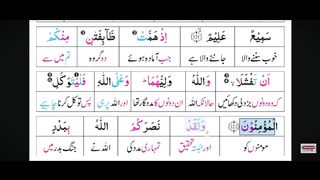 سَمِيْعٌ عَلِيْمٌ اِذْ هَمَّتْ طَّآئِفَتٰنِ مِنْكُمْ
خوب سننے والا جاننے والا ہے جب آمادہ ہوئے دو گروہ تم میں سے
اَنْ تَفْشَلَا وَاللّٰهُ وَلِيُّهُمَا وَعَلَى اللّٰهِ فَلْيَتَوَكَّلِ
کہ وہ دونوں بزدلی دکھائیں حالانکہ اللہ ان دونوں کا مددگار تھا اور اللہ پر ہی پس توکل کرنا چاہیے
الْمُؤْمِنُوْنَ وَلَقَدْ نَصَرَكُمُ اللّٰهُ بِبَدْرٍ
مومنوں کو اور البتہ تحقیق تمہاری مدد کی اللہ نے جنگ بدر میں